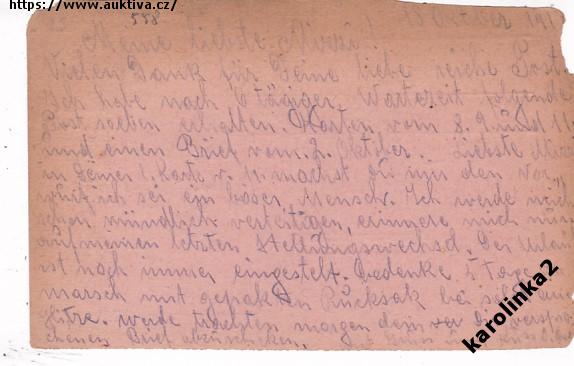 https://www.auktiva.cz/
558
Oktober 191
Meine liebste Mirzi!
Vielen Dank für Deine liebe reiche Post
Ich habe nach 6 tägiger Wartezeit folgende
Post soeben erhalten. Karten vom 8. 9. und 11
und einen Brief vom 7. Oktober. Liebste Mirzi
in Deiner Karte v. 11. machst Du mir den Vor
wurf ich sei ein böser Mensch. Ich werde mich
schon mündlich verteidigen, erinnere mich
auf meinen letzten Stellungswechsel. Der Urlaub
ist noch immer eingestelt. Gedenke 5 Tage
marsch mit gepakten Rucksak bei
werde trachten morgen den
chenen Brief abzuschicken.
karolinka2